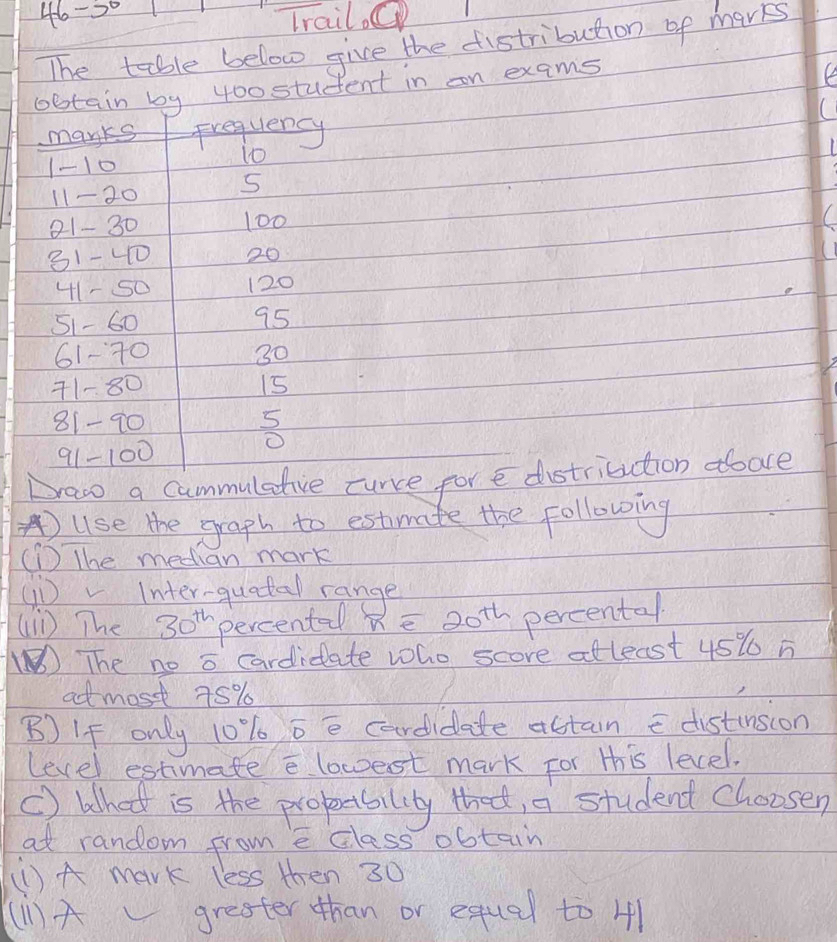 46-50
Trail.Q
The table below give the distribution of marks
obtain by 400 student in an exams
marks Frequency
1-10 10
11-20 5
21-30 100
31-40 20
41-50 120
51-60 95
61-70 30
71-80 15
81-90 5
91-100 0
Draw a Cummulative curve for ē distribution above
A) Use the graph to estimate the following
(i) The median mark
(ii) ✓ Inter-quatal range
(iii) The 30th percental n̄ ē 20th percental.
The no ō Cardidate who score atleast 45% n̄
atmost 75%
B) If only 10% ō ē cardidate abtain ē distinsion
Level estimate ē lowest mark for this level.
C) What is the probability that, a student Choosen
at random from ē Class obtain
(i) A mark less then 30
(ii) A ✓ grester than or equal to 41